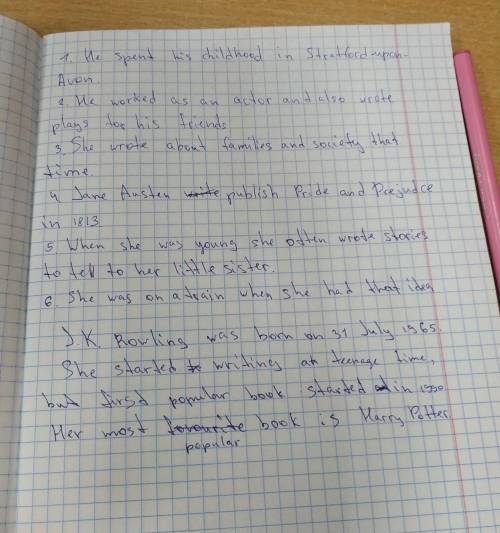 1. He spent his childhood in Stratford-upon-
Avon.
2. He worked as an actor and also wrote
plays for his friends
3. She wrote about families and society that
time.
4. Jane Austen write publish Pride and Prejudice
in 1813.
5. When she was young she often wrote stories
to tell to her little sister.
6. She was on a train when she had that idea
J.K. Rowling was born on 31 July 1965.
She started to writing at teenage time,
but first popular book started at in 1990
Her most favourite book is Harry Potter.
popular